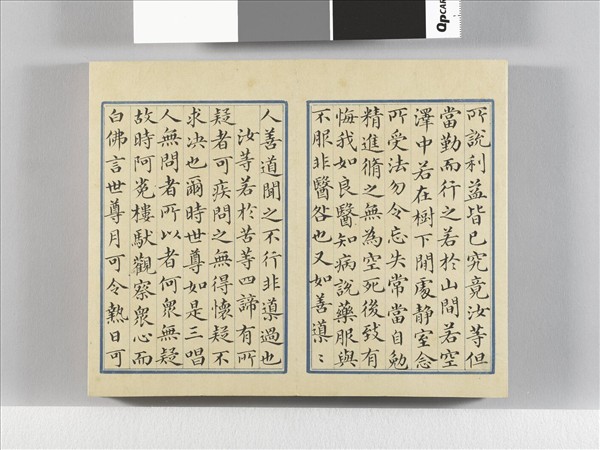 所說利益皆已究竟汝等但
當勤而行之若於山間若空
澤中若在樹下閒處靜室念
所受法勿令忘失常當自勉
精進脩之無為空死後致有
悔我如良醫知病說藥服與
不服非醫咎也又如善導〻
人善道聞之不行非導過也
汝等若於苦等四諦有所
疑者可疾問之無得懷疑不
求決也爾時世尊如是三唱
人無問者所以者何衆無疑
故時阿㝹樓馱觀察衆心而
白佛言世尊月可令熱日可
QpCARD